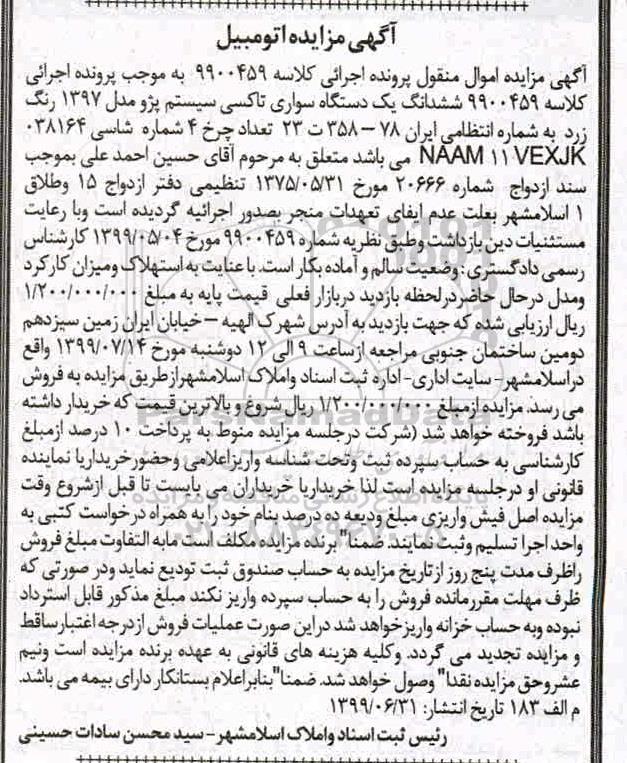 آگهی مزایده اتومبیل
آگهی مزایده اموال منقول پرونده اجرائی کلاسه ۹۹۰۰۴۵۹ به موجب پرونده اجرائی
کلاسه ۹۹۰۰۴۵۹ ششدانگ یک دستگاه سواری تاکسی سیستم پژو مدل ۱۳۹۷ رنگ
زرد به شماره انتظامی ایران ۷۸ – ۳۵۸ ت ۲۳ تعداد چرخ ۴ شماره شاسی ۰۳۸۱۶۴
NAAM ۱۱ VEXJK می باشد متعلق به مرحوم آقای حسین احمد علی بموجب
سند ازدواج شماره ۲۰۶۶۶ مورخ ۱۳۷۵/۰۵/۳۱ تنظیمی دفتر ازدواج ۱۵ وطلاق
۱ اسلامشهر بعلت عدم ایفای تعهدات منجر بصدور اجرائیه گردیده است وبا رعایت
مستثنیات دین بازداشت وطبق نظریه شماره ۹۹۰۰۴۵۹ مورخ ۱۳۹۹/۰۵/۰۴ کارشناس
رسمی دادگستری : وضعیت سالم و آماده بکار است. با عنایت به استهلاک ومیزان کارکرد
ومدل درحال حاضردرلحظه بازدید دربازار فعلی قیمت پایه به مبلغ ۱/۲۰۰/۰۰۰/۰۰۰
ریال ارزیابی شده که جهت بازدید به آدرس شهرک الهیه – خیابان ایران زمین سیزدهم
دومین ساختمان جنوبی مراجعه ازساعت ۹ الی ۱۲ دوشنبه مورخ ۱۳۹۹/۰۷/۱۴ واقع
دراسلامشهر- سایت اداری- اداره ثبت اسناد واملاک اسلامشهرازطریق مزایده به فروش
می رسد. مزایده ازمبلغ ۱/۲۰۰/۰۰۰/۰۰۰ ریال شروع و بالاترین قیمت که خریدار داشته
باشد فروخته خواهد شد (شرکت درجلسه مزایده منوط به پرداخت ۱۰ درصد ازمبلغ
کارشناسی به حساب سپرده ثبت وتحت شناسه واریزاعلامی وحضورخریداریا نماینده
قانونی او درجلسه مزایده است لذا خریداریا خریداران می بایست تا قبل ازشروع وقت
مزایده اصل فیش واریزی مبلغ ودیعه ده درصد بنام خود را به همراه درخواست کتبی به
واحد اجرا تسلیم وثبت نمایند. ضمنا" برنده مزایده مکلف است مابه التفاوت مبلغ فروش
راظرف مدت پنج روز ازتاریخ مزایده به حساب صندوق ثبت تودیع نماید ودر صورتی که
ظرف مهلت مقررمانده فروش را به حساب سپرده واریز نکند مبلغ مذکور قابل استرداد
نبوده وبه حساب خزانه واریزخواهد شد دراین صورت عملیات فروش ازدرجه اعتبارساقط
و مزایده تجدید می گردد. وکلیه هزینه های قانونی به عهده برنده مزایده است ونیم
عشروحق مزایده نقدا" وصول خواهد شد. ضمنا" بنابراعلام بستانکار دارای بیمه می باشد.
م الف ۱۸۳ تاریخ انتشار: ۱۳۹۹/۰۶/۳۱
رئیس ثبت اسناد واملاک اسلامشهر – سید محسن سادات حسینی